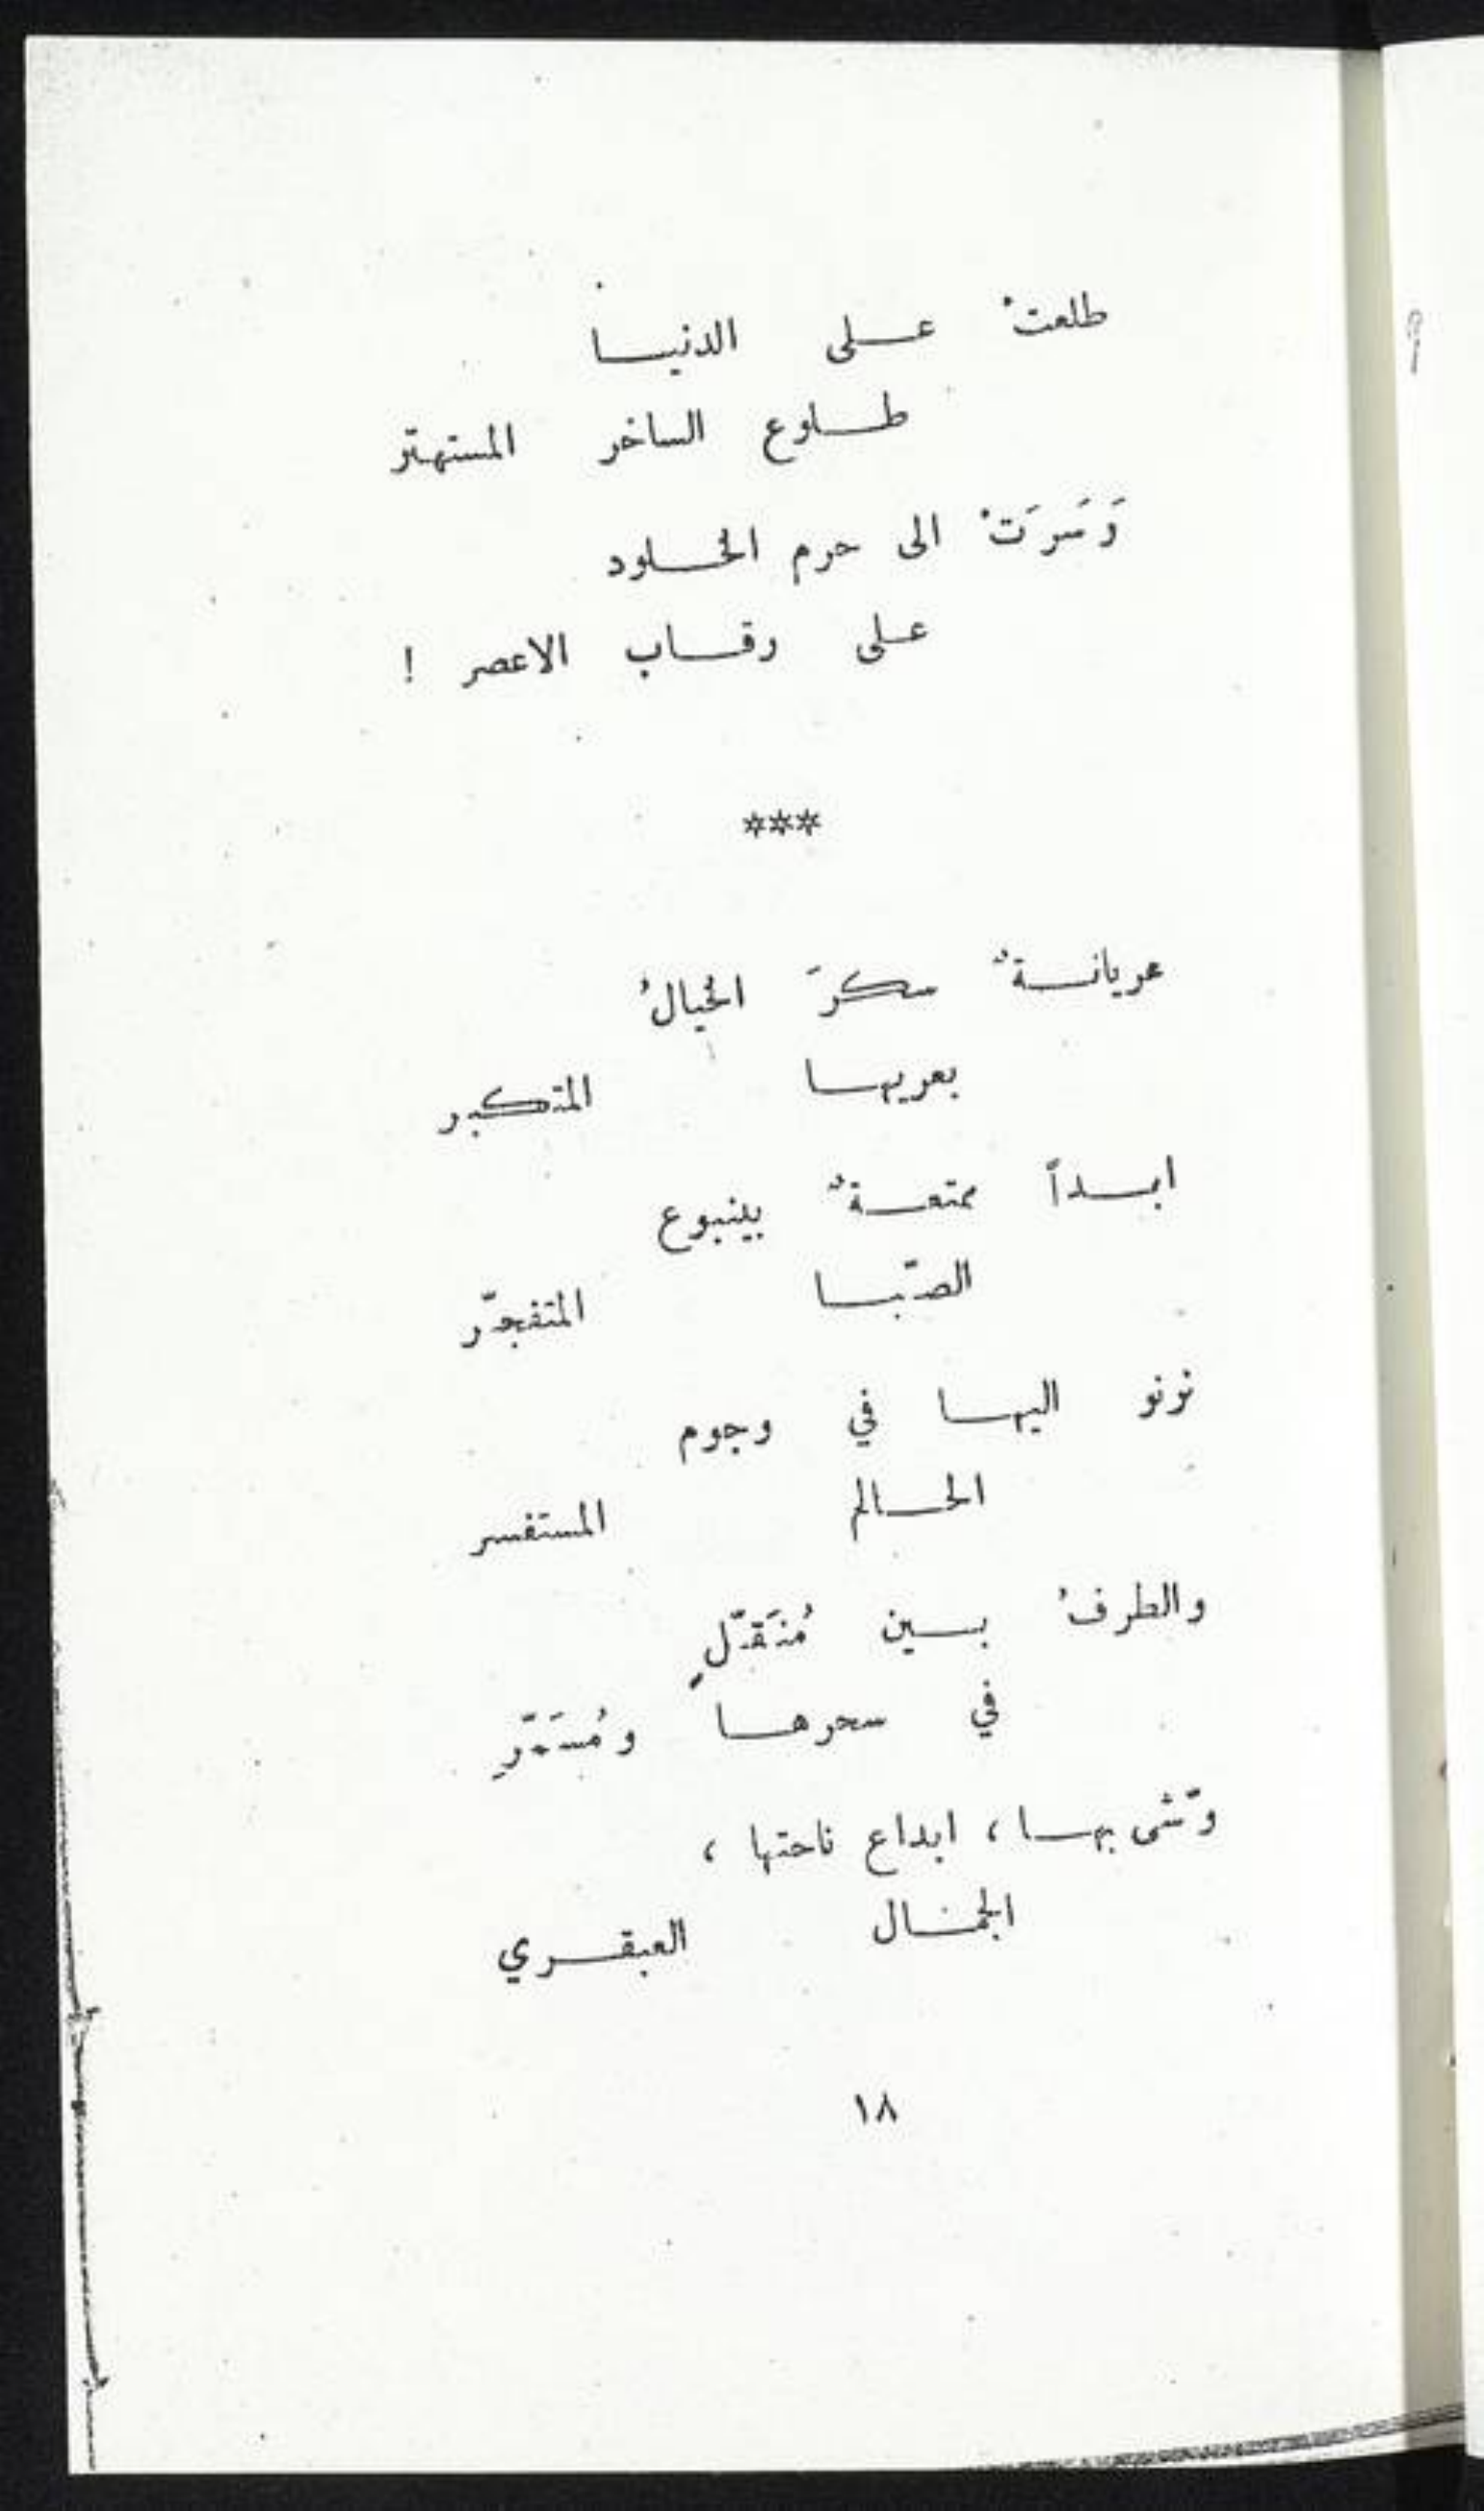 طلعتْ على الدنيا
طلوع الساخر المستهتر
وَسَرَتْ الى حرم الخلود
على رقاب الاعصر !
***
عريانةٌ سكرَ الخيالُ
بعريها المتكبر
ابداً ممتعةٌ بينبوع
الصّبا المتفجّر
نرنو اليها في وجوم
الحالم المستفسر
والطرفُ بين مُنَقّلٍ
في سحرها ومُسَمّرِ
وشّى بها ، ابداع ناحتها ،
الجمال العبقري
١٨